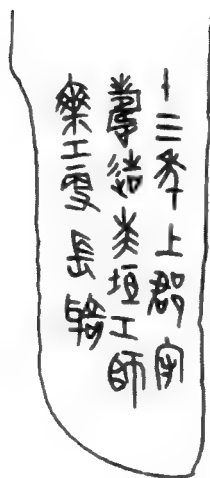 十三年上郡守
壽造桼垣工師
乘工更長